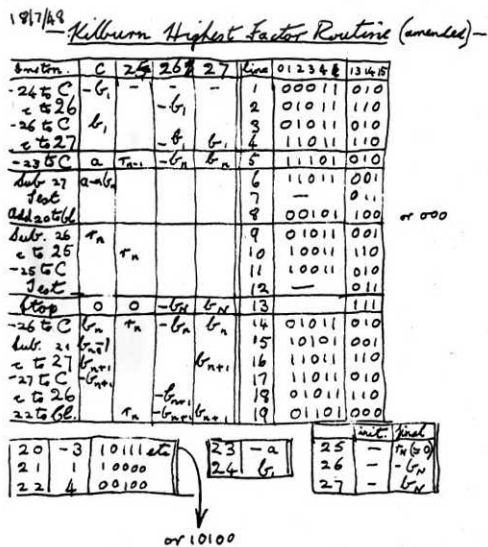 18/7/48 Kilburn Highest Factor Routine (amended)—
instn. C 25 26 27 line 0 1 2 3 4 13 14 15
-24 to C -b₁ - - - 1 00011 010
c to 26 -b₁ 2 01011 110
-26 to C b₁ 3 01011 010
c to 27 -b₁ b₁ 4 11011 110
-23 to C a rₙ₋₁ -bₙ bₙ 5 11101 010
Sub 27 a-bₙ 6 11011 001
Test 7 — 011
Add 20 to bl. 8 00101 100 or 000
Sub. 26 rₙ 9 01011 001
c to 25 rₙ 10 10011 110
-25 to C 11 10011 010
Test 12 — 011
Stop 0 0 -bN bN 13 111
-26 to C bₙ rₙ -bₙ bₙ 14 01011 010
Sub. 21 bₙ₊₁ 15 10101 001
c to 27 bₙ₊₁ bₙ₊₁ 16 11011 110
-27 to C -bₙ₊₁ 17 11011 010
c to 26 -bₙ₊₁ 18 01011 110
22 to bl. rₙ -bₙ₊₁ bₙ₊₁ 19 01101 000
20 -3 10111 etc
21 1 10000
22 4 00100
or 10100
23 -a
24 b₁
init. final
25 - rN (=0)
26 - -bN
27 - bN